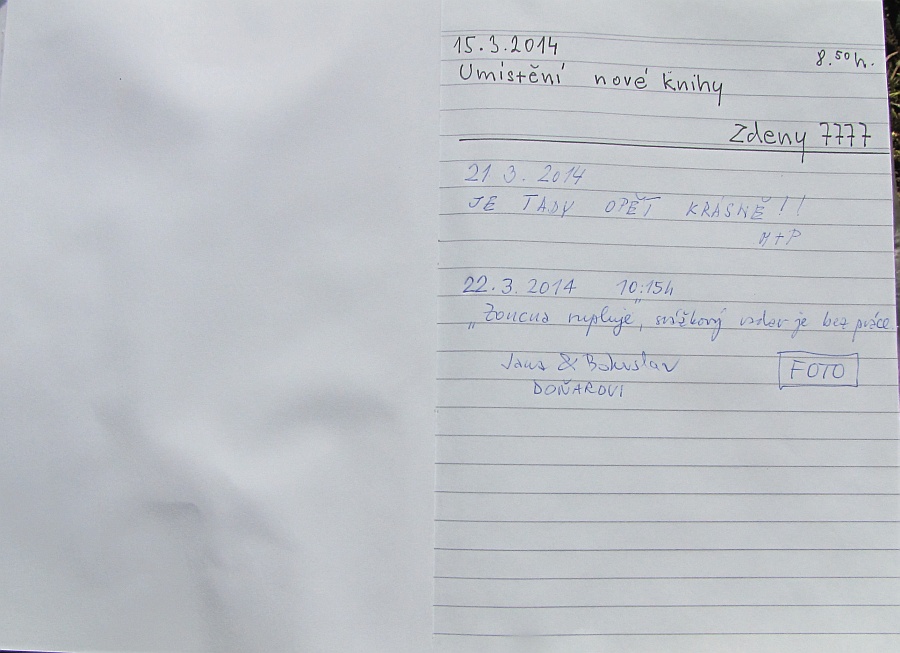 15.3.2014 8.50h.
Umístění nové knihy
Zdeny 7777
21 3. 2014
JE TADY OPĚT KRÁSNĚ!!
M+P
22.3.2014 10:15h
je bez práce
Jana & Bohuslav FOTO
DOŇAROVI